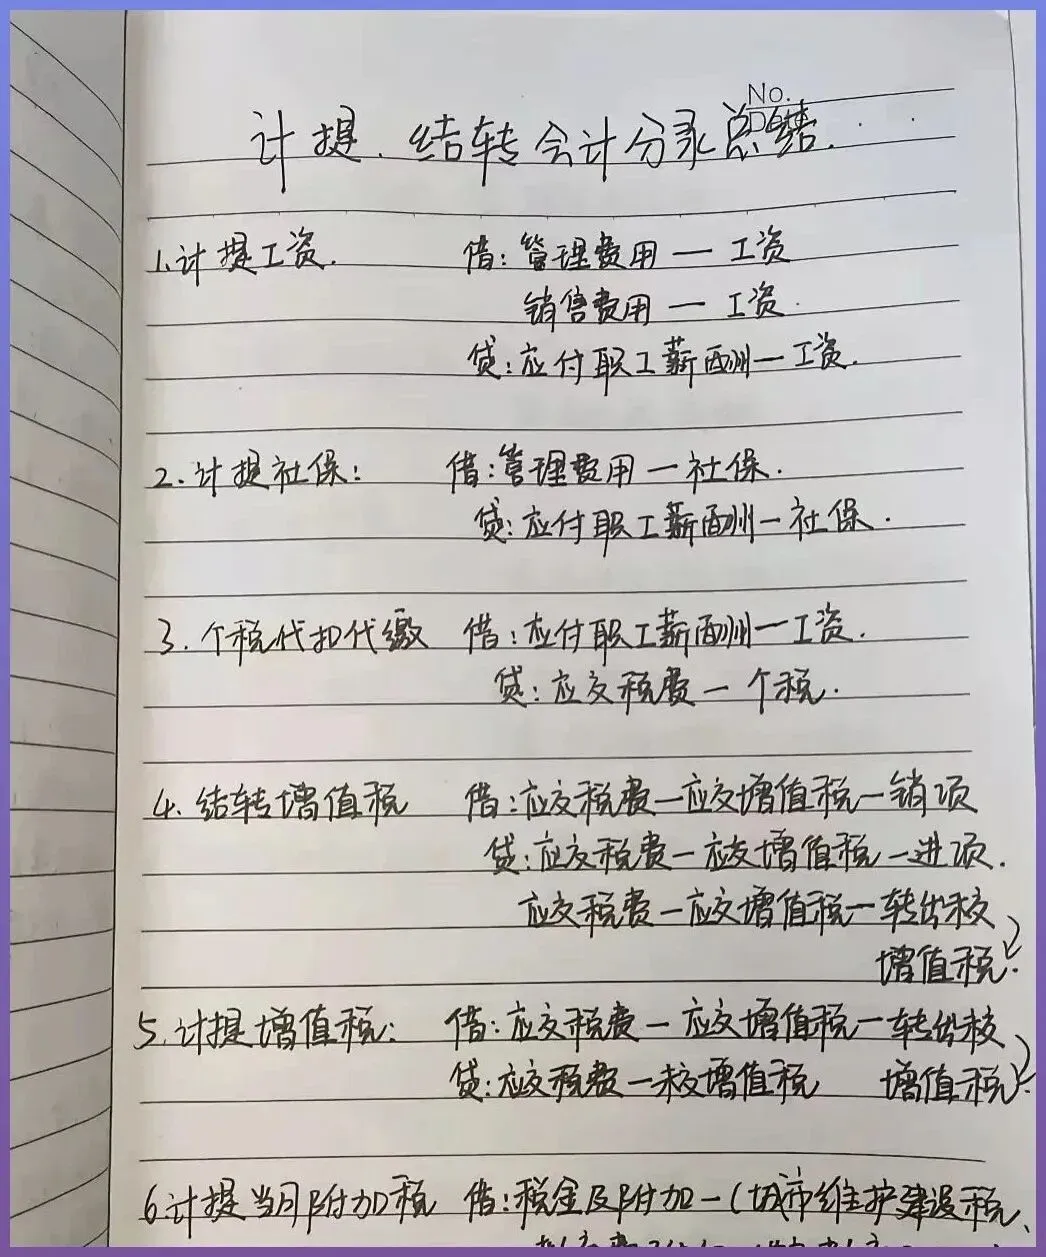 No.
计提、结转会计分录总结.
1.计提工资. 借:管理费用一工资
销售费用一工资.
贷:应付职工薪酬一工资.
2.计提社保: 借:管理费用一社保.
贷:应付职工薪酬一社保.
3.个税代扣代缴 借:应付职工薪酬一工资.
贷:应交税费一个税.
4.结转增值税 借:应交税费一应交增值税一销项
贷:应交税费一应交增值税一进项.
应交税费一应交增值税一转出未交
增值税.
5.计提增值税: 借:应交税费一应交增值税一转出未交
贷:应交税费一未交增值税 增值税.
6.计提当月附加税 借:税金及附加一(城市维护建设税、